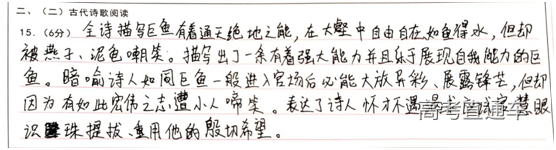 二、（二）古代诗歌阅读
15.（6分）全诗描写巨鱼有着通天绝地之能，在大壑中自由自在如鱼得水，但却
被燕子、泥龟嘲笑。描写出了一条有着强大能力并且乐于展现自我能力的巨
鱼。暗喻诗人如同巨鱼一般进入官场后必能大放异彩、展露锋芒，但却
因为有如此宏伟之志遭小人啼笑。表达了诗人怀才不遇 慧眼
识珠提拔、重用他的殷切希望。
高考直通车